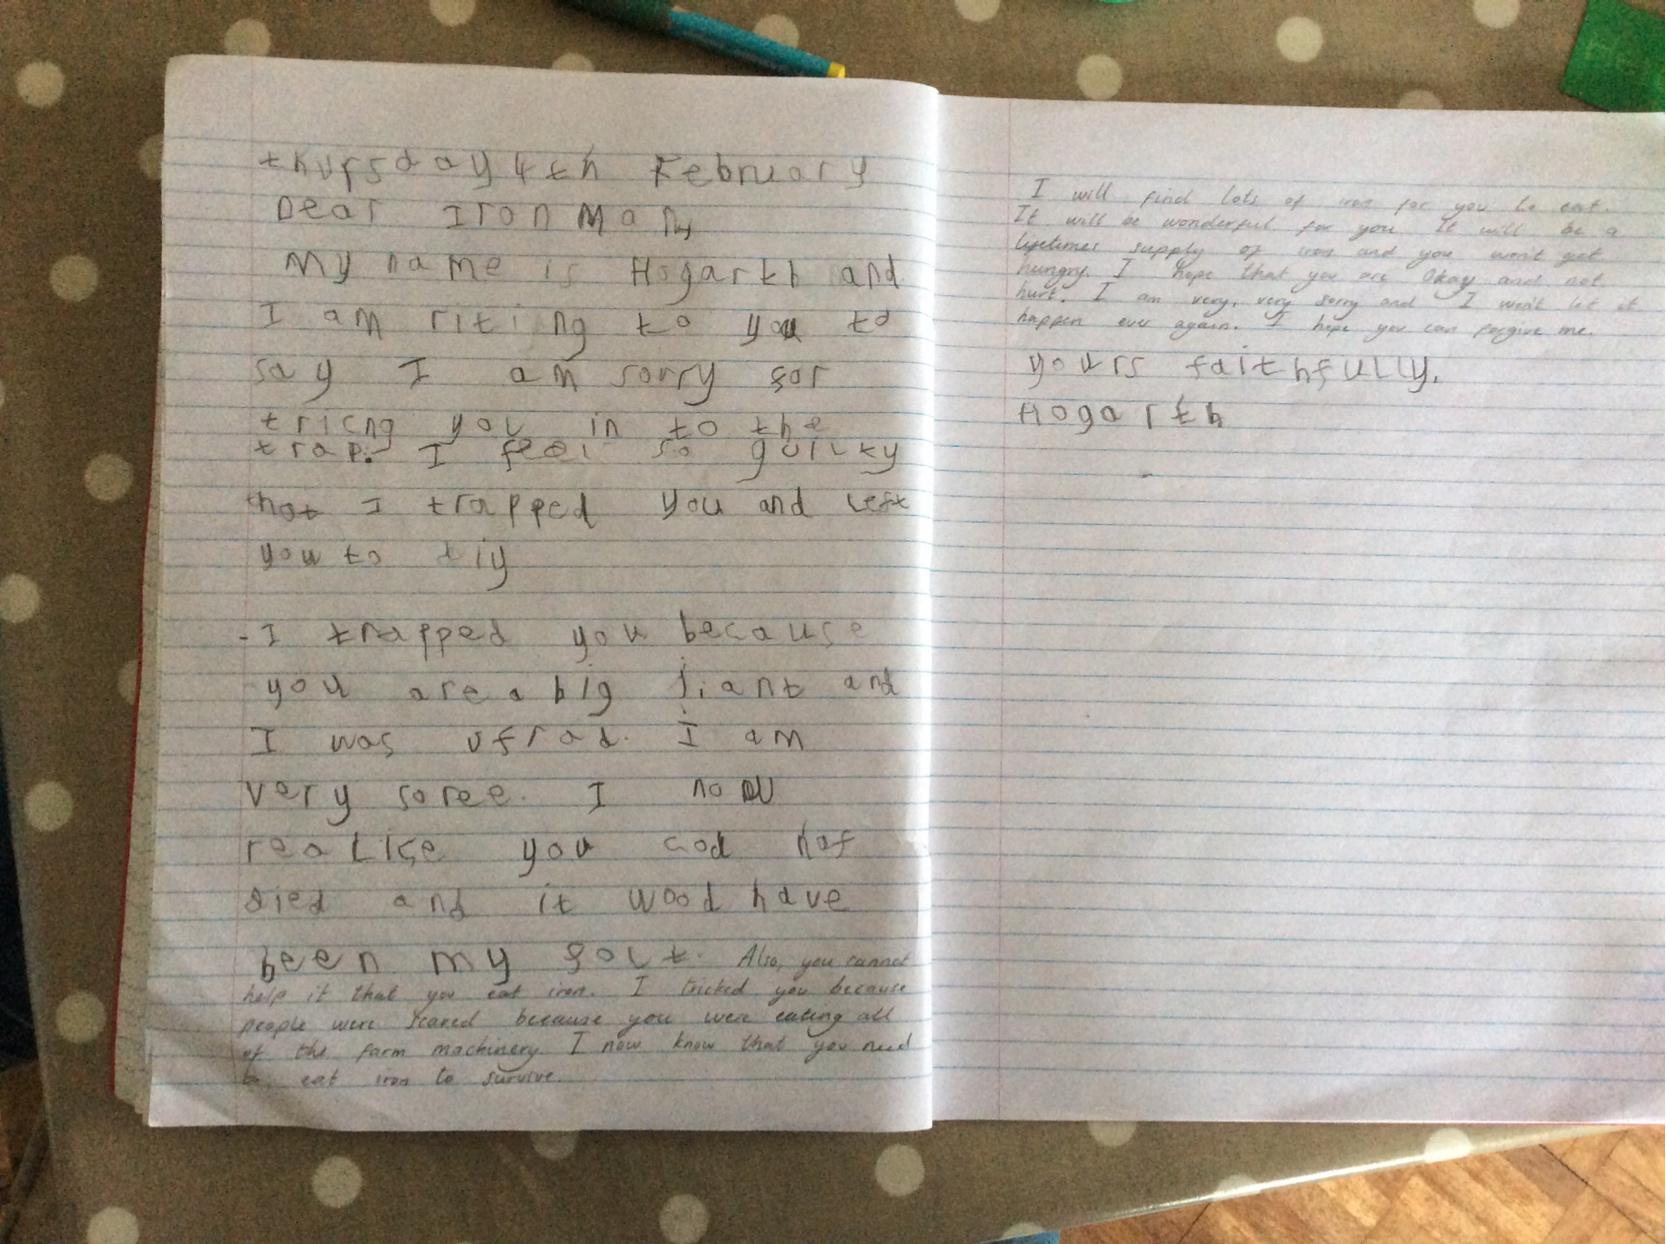 thursday 4th February
Dear Iron Man,
My name is Hogarth and
I am riting to you to
say I am sorry for
tricng you in to the
trap. I feel so guilty
that I trapped you and left
you to diy
- I trapped you because
you are a big jiant and
I was ufrad. I am
very soree. I now
realise you cod haf
died and it wood have
been my folt. Also, you cannot
help it that you eat iron. I tricked you because
people were scared because you were eating all
of the farm machinery. I now know that you need
to eat iron to survive.
I will find lots of iron for you to eat.
It will be wonderful for you. It will be a
lifetimes supply of iron and you won't get
hungry. I hope that you are Okay and not
hurt. I am very, very sorry and I won't let it
happen ever again. I hope you can forgive me.
yours faithfully,
Hogarth